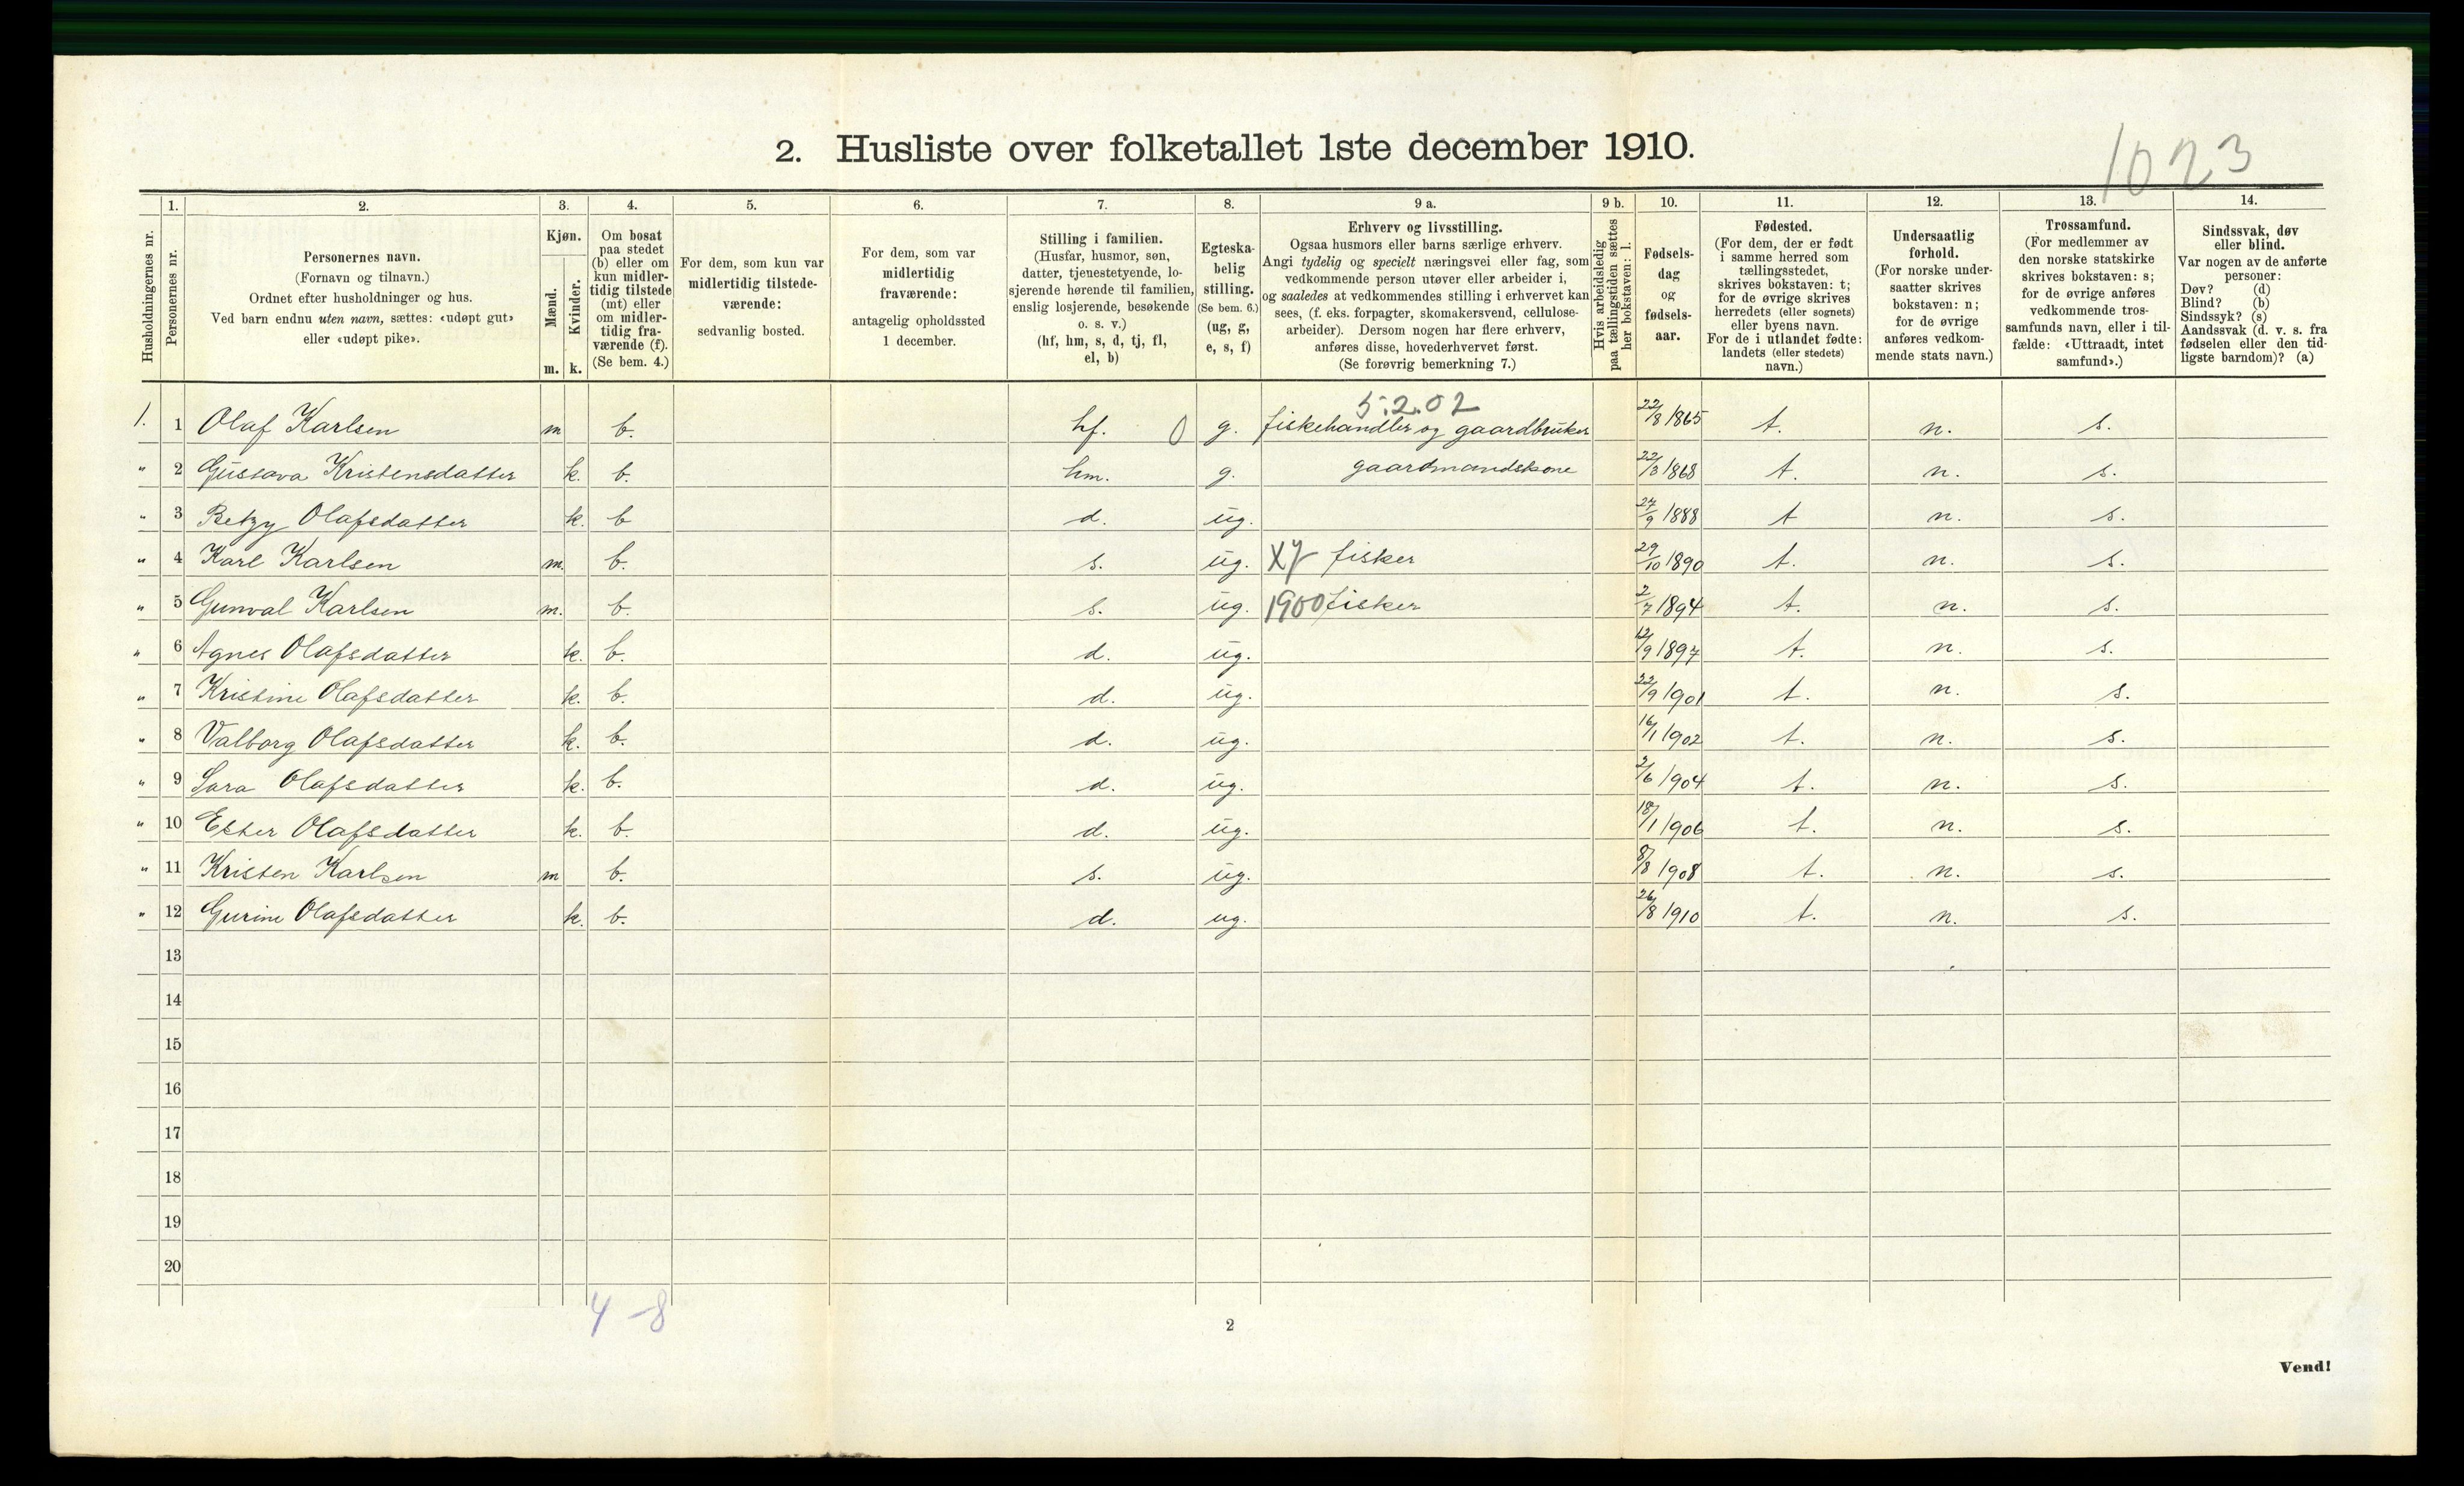 2. Husliste over folketallet 1ste december 1910.
1023
Husholdningernes nr.
1. Personernes nr.
2. Personernes navn.
(Fornavn og tilnavn.)
Ordnet efter husholdninger og hus.
Ved barn endnu uten navn, sættes: «udøpt gut»
eller «udøpt pike».
3. Kjøn.
Mænd. m.
Kvinder. k.
4. Om bosat
paa stedet
(b) eller om
kun midler-
tidig tilstede
(mt) eller
om midler-
tidig fra-
værende (f).
(Se bem. 4.)
5. For dem, som kun var
midlertidig tilstede-
værende:
sedvanlig bosted.
6. For dem, som var
midlertidig
fraværende:
antagelig opholdssted
1 december.
7. Stilling i familien.
(Husfar, husmor, søn,
datter, tjenestetyende, lo-
sjerende hørende til familien,
enslig losjerende, besøkende
o. s. v.)
(hf, hm, s, d, tj, fl,
el, b)
8. Egteska-
belig
stilling.
(Se bem. 6.)
(ug, g,
e, s, f)
9 a. Erhverv og livsstilling.
Ogsaa husmors eller barns særlige erhverv.
Angi tydelig og specielt næringsvei eller fag, som
vedkommende person utøver eller arbeider i,
og saaledes at vedkommendes stilling i erhvervet kan
sees, (f. eks. forpagter, skomakersvend, cellulose-
arbeider). Dersom nogen har flere erhverv,
anføres disse, hovederhvervet først.
(Se forøvrig bemerkning 7.)
9 b. Hvis arbeidsledig
paa tællingstiden sættes
her bokstaven: l.
10. Fødsels-
dag
og
fødsels-
aar.
11. Fødested.
(For dem, der er født
i samme herred som
tællingsstedet,
skrives bokstaven: t;
for de øvrige skrives
herredets (eller sognets)
eller byens navn.
For de i utlandet fødte:
landets (eller stedets)
navn.)
12. Undersaatlig
forhold.
(For norske under-
saatter skrives
bokstaven: n;
for de øvrige
anføres vedkom-
mende stats navn.)
13. Trossamfund.
(For medlemmer av
den norske statskirke
skrives bokstaven: s;
for de øvrige anføres
vedkommende tros-
samfunds navn, eller i til-
fælde: «Uttraadt, intet
samfund».)
14. Sindssvak, døv
eller blind.
Var nogen av de anførte
personer:
Døv? (d)
Blind? (b)
Sindssyk? (s)
Aandssvak (d. v. s. fra
fødselen eller den tid-
ligste barndom)? (a)
5.2.02
1. 1 Olaf Karlsen m b. hf. 0 g. fiskehandler og gaardbruker 22/8 1865 t. n. s.
" 2 Gustava Kristensdatter k. b. hm. g. gaardmandskone 22/3 1868 t. n. s.
" 3 Betzy Olafsdatter k. b d. ug. 24/9 1888 t n. s.
" 4 Karl Karlsen m. b. s. ug. X7 fisker 29/10 1890 t. n. s.
" 5 Gunval Karlsen m. b. s. ug. 1900 fisker 2/7 1894 t. n. s.
" 6 Agnes Olafsdatter k. b. d. ug. 12/9 1897 t. n. s.
" 7 Kristine Olafsdatter k. b. d. ug. 22/9 1901 t. n. s.
" 8 Valborg Olafsdatter k. b. d. ug. 16/1 1902 t. n. s.
" 9 Sara Olafsdatter k. b. d. ug. 2/6 1904 t. n. s.
" 10 Ester Olafsdatter k. b. d. ug. 18/1 1906 t. n. s.
" 11 Kristen Karlsen m b. s. ug. 8/8 1908 t. n. s.
" 12 Gurine Olafsdatter k. b. d. ug. 26/8 1910 t. n. s.
13
14
15
16
17
18
19
20
4-8
2
Vend!